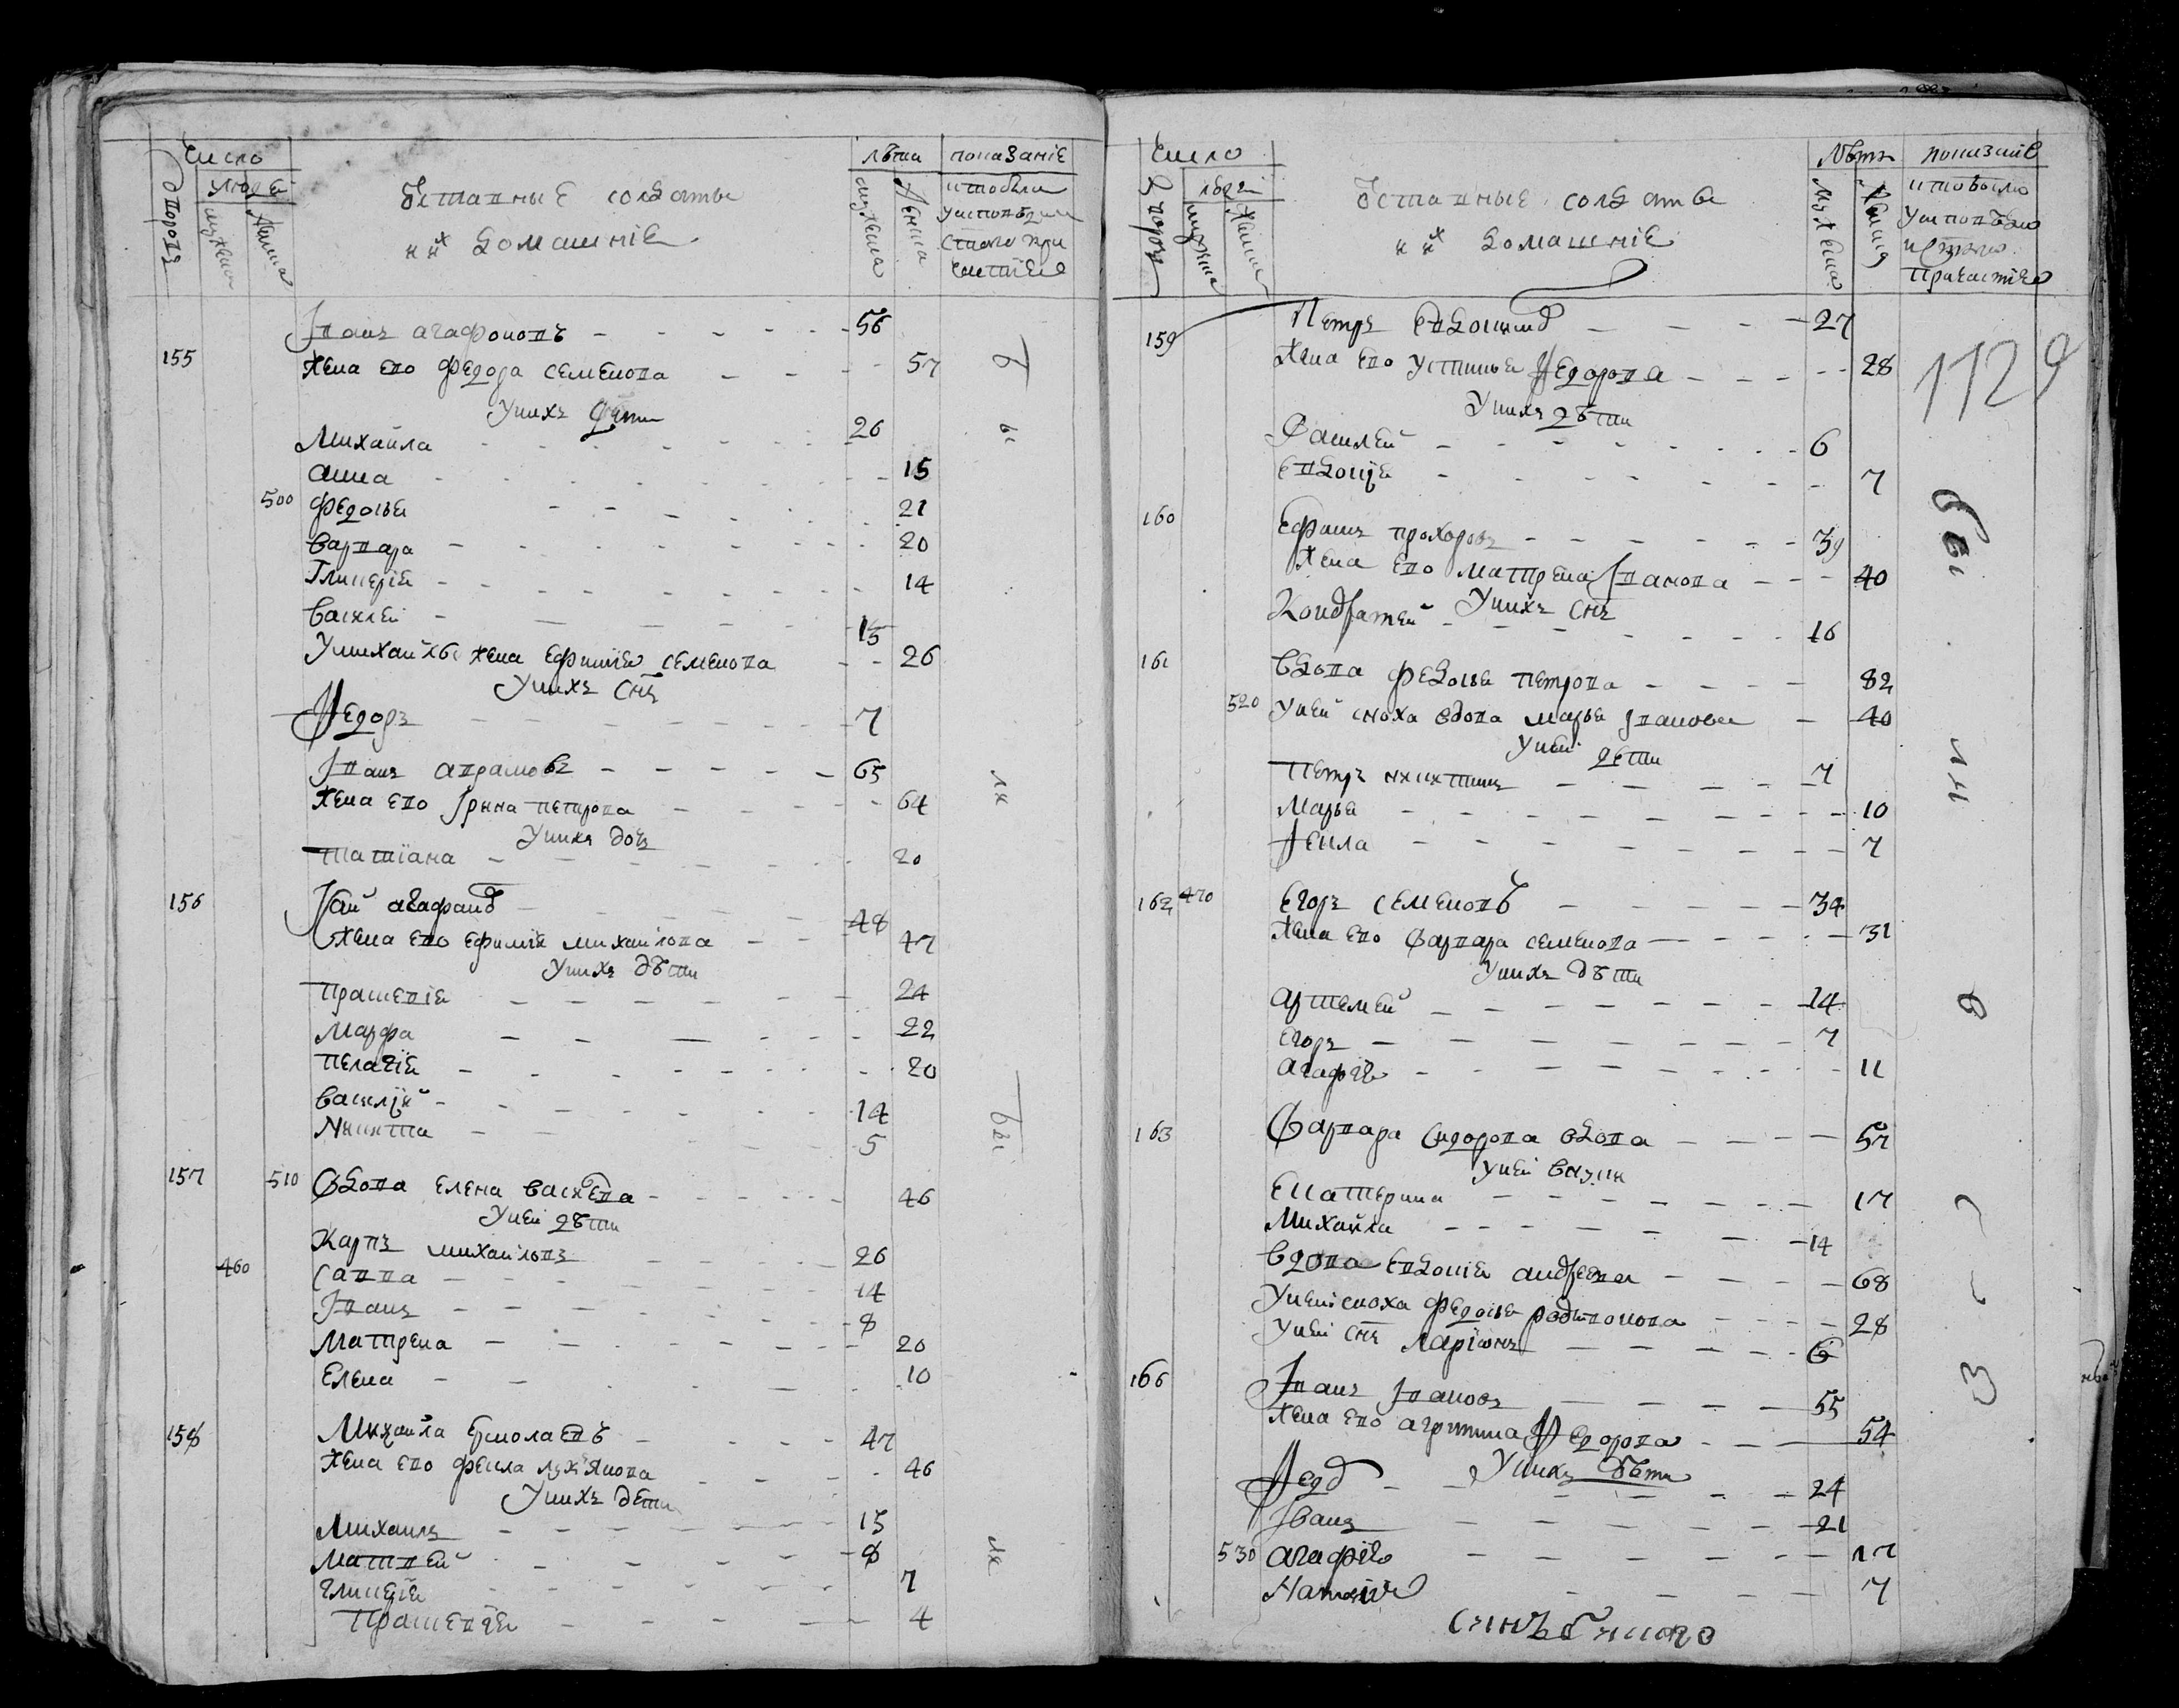 Число
людей
дворовъ
мужеска
женска
Отставные солдаты
и их домашніе
лѣта
мужеска
женска
показаніе
кто были
у исповѣди и
святаго при
частія
Іванъ агафоновъ 56
155 жена ево федора семенова 57
У нихъ дѣти
Михайла 26
анна 15
500 федосья 21
варвара 20
Гликерія 14
василей 15
У михайлы жена ефимія семенова 26
У нихъ снъ
Федоръ 7
Іванъ аврамовъ 65
жена ево Ірина петрова 64
У нихъ дочь
татіана 20
156 агафонов 48
жена ево ефимія михаилова 47
У нихъ дѣти
прасковія 24
марфа 22
пелагія 20
василій 14
Никита 5
157 510 Вдова елена василева 46
У неи дѣти
Карпъ михаиловъ 26
460 Савва 14
Іванъ 8
Матрена 20
Елена 10
158 Михаила Ермолаевъ 47
жена ево фекла лукьянова 46
У нихъ дети
Михаилъ 15
Матвей 8
гликерія 7
прасковія 4
бы
ли
бы
ли
Число
дворовъ
людей
мужеска
женска
Отставные солдаты
и их домашніе
лѣтъ
мужеска
женска
показаніе
кто были
у исповѣди
и святаго
причастія
1129
159 Петръ Евдокимов 27
жена ево устинья Федорова 28
У нихъ дѣти
Василей 6
евдокія 7
160 Ефимъ прохоровъ 39
жена ево матрена Іванова 40
У нихъ снъ
Кондратей 16
161 вдова федосья петрова 82
520 У ней сноха вдова марья Іванова 40
У ней дѣти
петръ никитинъ 7
Марья 10
Фекла 7
162 470 Егоръ семеновъ 34
жена ево варвара семенова 31
У нихъ дѣти
артемей 14
егоръ 7
агафія 11
163 Варвара сидорова вдова 57
у ней внуки
Екатерина 17
Михайла 14
вдова евдокія андреева 68
У ней сноха федосья родионова 28
У ней снъ ларіонъ 6
166 Іванъ Івановъ 55
жена ево агрипина Федорова 54
У нихъ дѣти
Федор 24
Іванъ 21
530 агафія 17
Наталія 7
бы
ли